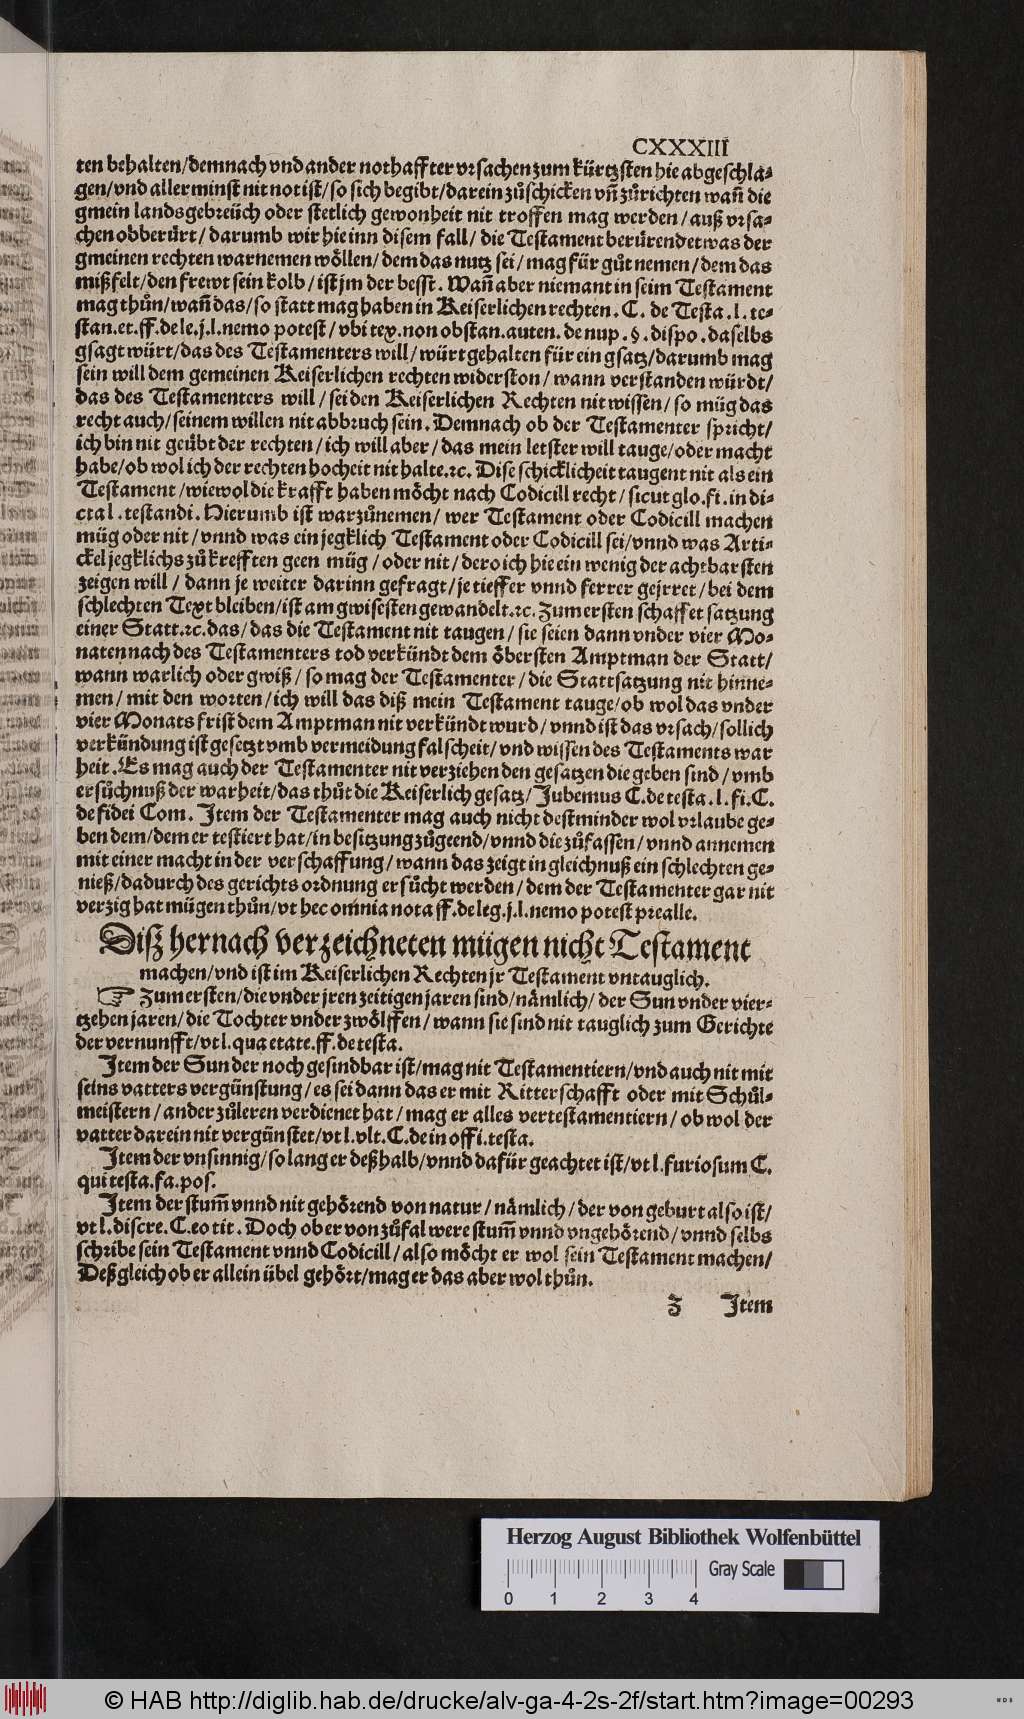 CXXXIII
ten behalten/demnach vnd ander nothaffter vrsachen zum kürtzsten hie abgeschla⸗
gen/vnd aller minst nit not ist/so sich begibt/darein zůschicken vñ zůrichten wañ die
gmein landsgebreüch oder stetlich gewonheit nit troffen mag werden/auß vrsa⸗
chen obberürt/darumb wir hie inn disem fall/die Testament berürend etwas der
gmeinen rechten warnemen wöllen/dem das nutz sei/mag für gůt nemen/dem das
mißfelt/den frewt sein kolb/ist jm der besst. Wañ aber niemant in seim Testament
mag thůn/wañ das/so statt mag haben in Keiserlichen rechten. C. de Testa.l.te⸗
stan.et.ff.de le.j.l.nemo potest/vbi tex.non obstan.auten.de nup.§.dispo.daselbs
gsagt würt/das des Testamenters will/würt gehalten für ein gsatz/darumb mag
sein will dem gemeinen Keiserlichen rechten widerston/wann verstanden würdt/
das des Testamenters will/sei den Keiserlichen Rechten nit wissen/so müg das
recht auch/seinem willen nit abbruch sein. Demnach ob der Testamenter spricht/
ich bin nit geübt der rechten/ich will aber/das mein letster will tauge/oder macht
habe/ob wol ich der rechten hocheit nit halte.ꝛc. Dise schicklicheit taugent nit als ein
Testament/wiewol die krafft haben möcht nach Codicill recht/sicut glo.fi.in di⸗
cta l.testandi. Hierumb ist warzůnemen/wer Testament oder Codicill machen
müg oder nit/vnnd was ein jegklich Testament oder Codicill sei/vnnd was Arti⸗
ckel jegklichs zů krefften geen müg/oder nit/dero ich hie ein wenig der achtbarsten
zeigen will/dann je weiter darinn gefragt/je tieffer vnnd ferrer gejrret/bei dem
schlechten Text bleiben/ist am gwisesten gewandelt.ꝛc. Zum ersten schaffet satzung
einer Statt.ꝛc.das/das die Testament nit taugen/sie seien dann vnder vier Mo⸗
naten nach des Testamenters tod verkündt dem öbersten Amptman der Statt/
wann warlich oder gwiß/so mag der Testamenter/die Stattsatzung nit hinne⸗
men/mit den worten/ich will das diß mein Testament tauge/ob wol das vnder
vier Monats frist dem Amptman nit verkündt wurd/vnnd ist das vrsach/sollich
verkündung ist gesetzt vmb vermeidung falscheit/vnd wissen des Testaments war
heit. Es mag auch der Testamenter nit verziehen den gesatzen die geben sind/vmb
ersůchnuß der warheit/das thůt die Keiserlich gesatz/Jubemus C.de testa.l.fi.C.
de fidei Com. Item der Testamenter mag auch nicht destminder wol vrlaube ge⸗
ben dem/dem er testiert hat/in besitzung zůgeend/vnnd die zůfassen/vnnd annemen
mit einer macht in der verschaffung/wann das zeigt in gleichnuß ein schlechten ge⸗
nieß/dadurch des gerichts ordnung ersůcht werden/dem der Testamenter gar nit
verzig hat mügen thůn/vt hec omnia nota ff.de leg.j.l.nemo potest prealle.
Diß hernach verzeichneten mügen nicht Testament
machen/vnd ist im Keiserlichen Rechten jr Testament vntauglich.
☞ Zum ersten/die vnder jren zeitigen jaren sind/nämlich/der Sun vnder vier⸗
tzehen jaren/die Tochter vnder zwölffen/wann sie sind nit tauglich zum Gerichte
der vernunfft/vt l.qua etate.ff.de testa.
Item der Sun der noch gesindbar ist/mag nit Testamentiern/vnd auch nit mit
seins vatters vergünstung/es sei dann das er mit Ritterschafft oder mit Schůl⸗
meistern/ander zůleren verdienet hat/mag er alles vertestamentiern/ob wol der
vatter darein nit vergünstet/vt l.vlt.C.de in offi.testa.
Item der vnsinnig/so lang er deßhalb/vnnd dafür geachtet ist/vt l.furiosum C.
qui testa.fa.pos.
Item der stum̃ vnnd nit gehörend von natur/nämlich/der von geburt also ist/
vt l.discre.C.eo tit. Doch ob er von zůfal were stum̃ vnnd vngehörend/vnnd selbs
schribe sein Testament vnnd Codicill/also möcht er wol sein Testament machen/
Deßgleich ob er allein übel gehört/mag er das aber wol thůn.
Z Item
Herzog August Bibliothek Wolfenbüttel
Gray Scale
0 1 2 3 4
© HAB http://diglib.hab.de/drucke/alv-ga-4-2s-2f/start.htm?image=00293